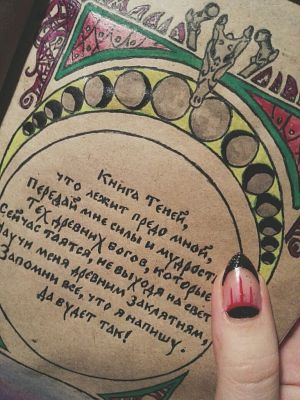 Книга Теней,
что лежит предо мной,
Передай мне силы и мудрость
Тех древних богов, которые
Сейчас таятся, не выходя на свет
Научи меня древним заклятиям,
Запомни все, что я напишу.
Да будет так!